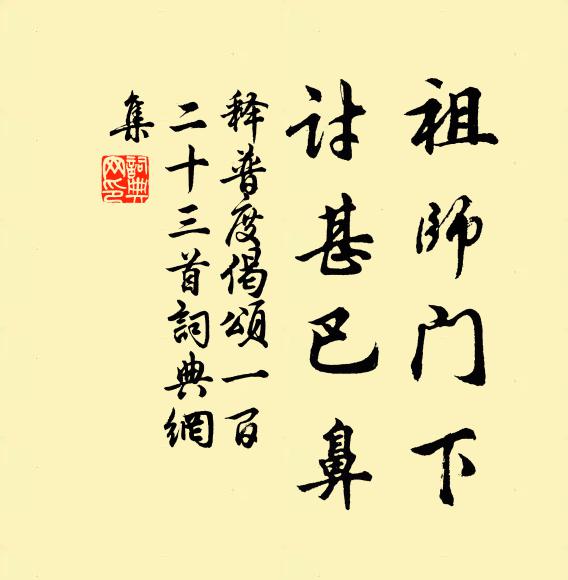 祖師门下
討甚巴鼻
释普度偈頌一百
二十三首詞典網
集
詞典
网印